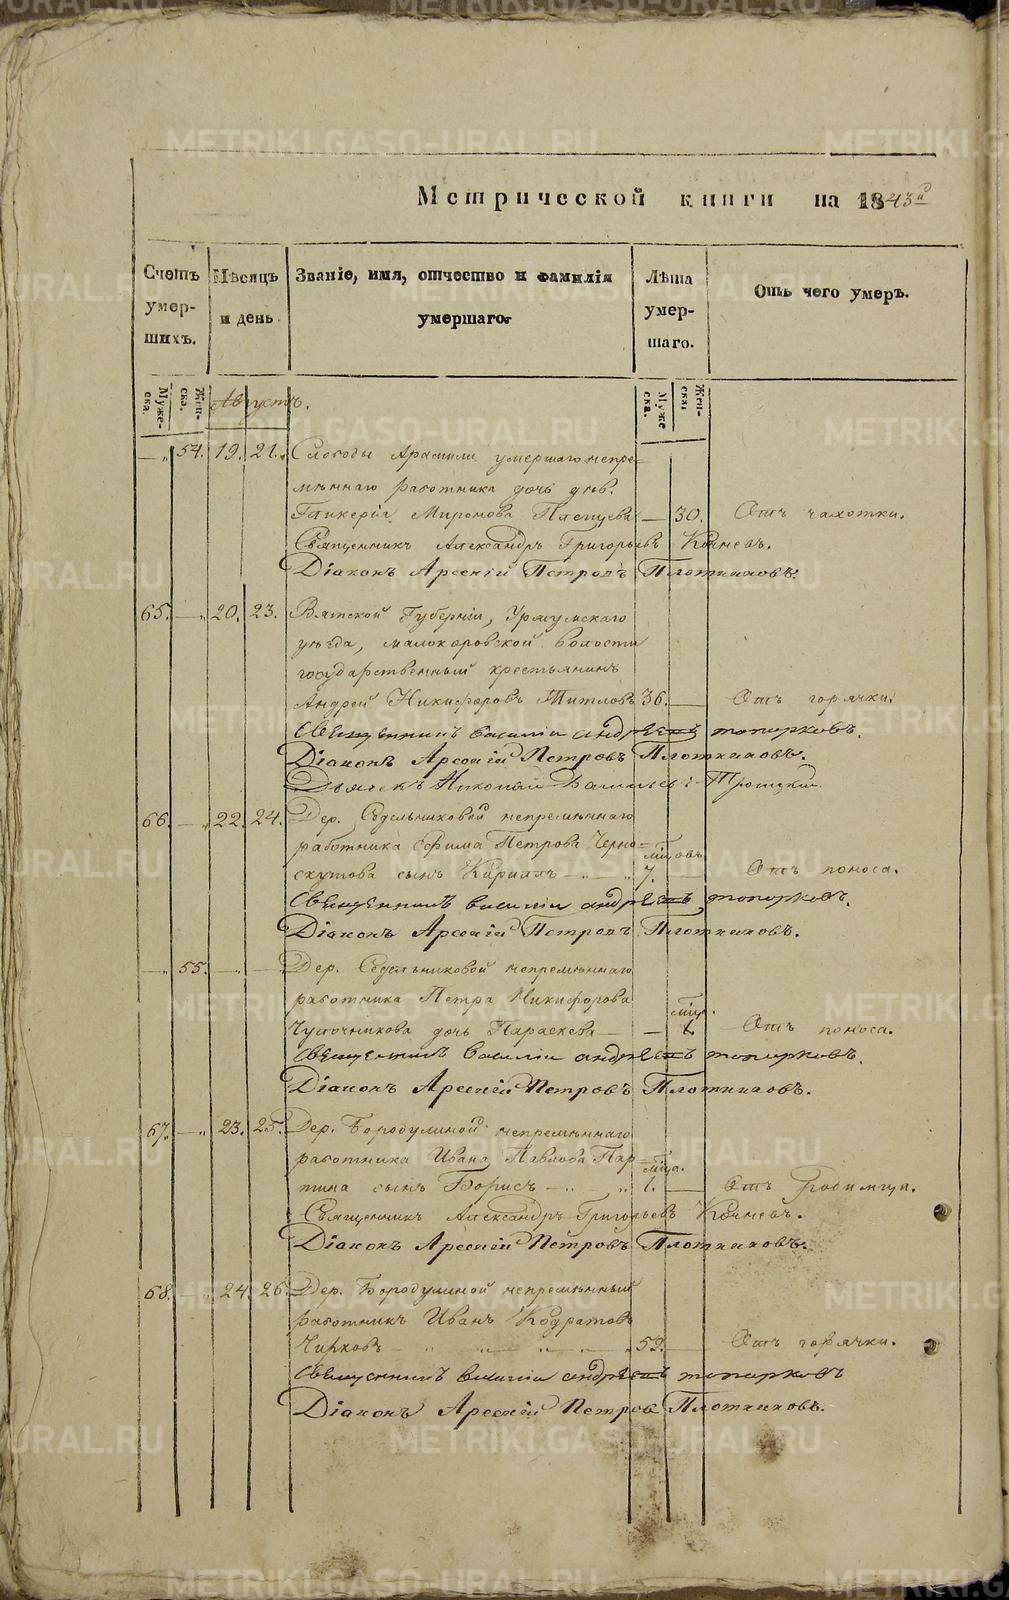 Метрической книги на 1843й
Счетъ умер-шихъ. Мѣсяцъ и день Званіе, имя, отчество и фамилія умершаго. Лѣта умер-шаго. Отъ чего умеръ.
Муже-ска. Жен-ска. Августъ. Муже ска. Жен-ска.
— „ 54. 19. 21. Слободы Арамили умершаго непре=
мѣннаго работника дочь дѣв.
Гликерія Миронова — 30. Отъ чахотки.
Священникъ Александръ Григорьевъ Кочневъ.
Діаконъ Арсеній Петровъ Плотниковъ.
65. — „ 20. 23. Вятской Губерніи, Уржумскаго
уѣзда, волости
государственный крестьянинъ
Андрей Никифоровъ Титловъ 36. — Отъ горячки.
Священникъ Василій Андреевъ Топорковъ.
Діаконъ Арсеній Петровъ Плотниковъ.
Дьячекъ Николай Васильевъ Троицкій.
66. — „ 22. 24. Дер. Седельниковой непремѣннаго
работника Ефима Петрова Черно=
скутова сынъ Кириллъ — „ мѣсцовъ 7. — Отъ поноса.
Священникъ Василій Андреевъ Топорковъ.
Діаконъ Арсеній Петровъ Плотниковъ.
— „ 55. — „ — Дер. Седельниковой непремѣннаго
работника Петра Никифорова
дочь Параскева — — мѣсц. 1. Отъ поноса.
Священникъ Василій Андреевъ Топорковъ.
Діаконъ Арсеній Петровъ Плотниковъ.
67. — „ 23. 25. Дер. Бородулиной непремѣннаго
работника Ивана Павлова Пар=
тина сынъ Борисъ — „ „ мѣсца. 1. — Отъ родимца.
Священникъ Александръ Григорьевъ Кочневъ.
Діаконъ Арсеній Петровъ Плотниковъ.
68. — „ 24. 26. Дер. Бородулиной непремѣнный
работникъ Иванъ Кодратовъ
Чирковъ — „ — „ — „ 59. — Отъ горячки.
Священникъ Василій Андреевъ Топорковъ
Діаконъ Арсеній Петровъ Плотниковъ.
METRIKI.GASO-URAL.RU